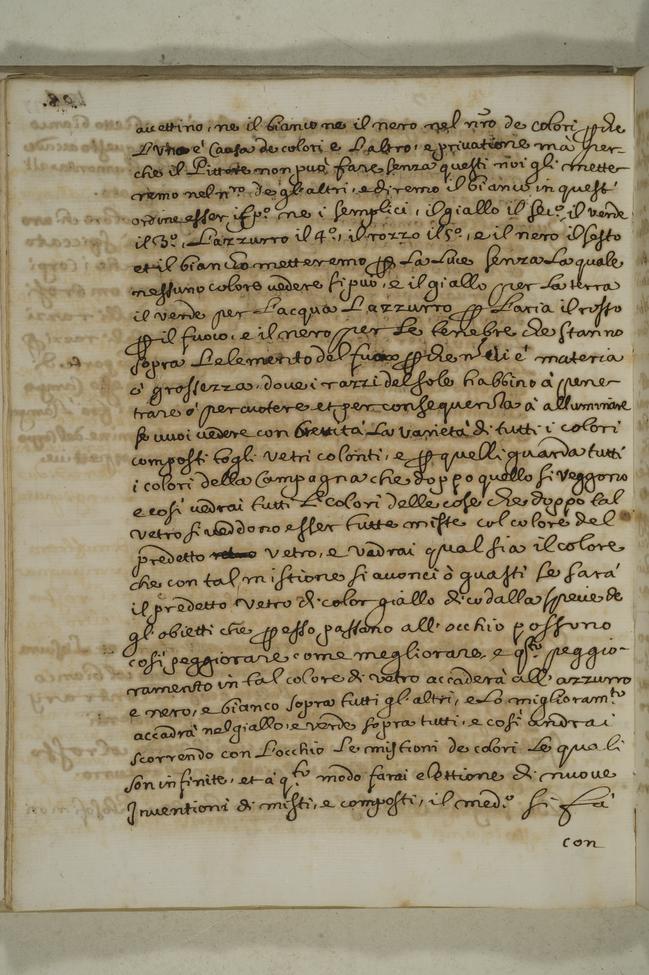 accettino, ne il bianco ne il nero nel nro de colori p che
L'uno è causa de colori e L'altro, e privatione mà per-
che il Pittore non può fare senza questi noi gli mette
remo nel nro de gl'altri, e diremo il bianco in quest'
ordine esser il p.º ne i semplici, il giallo il sec.º il verde
il 3.º, L'azzurro il 4.º, il rozzo il 5.º, e il nero il sesto
et il bianco metteremo p La Luce senza La quale
nessuno colore vedere si può, e il giallo per La terra
il verde per L'acqua L'azzurro p L'aria il rosso
p il fuoco, e il nero per Le tenebre che stanno
sopra L'elemento del fuoco p che n v'è materia
ò grossezza, dove i razzi del sole habbino à pene-
trare ò percuotere et per consequenza à alluminare
se vuoi vedere con brevità La varietà di tutti i colori
composti togli vetri coloriti, e p quelli guarda tutti
i colori della Campagna che doppo quello si veggono
e così vedrai tutti Le colori delle cose che doppo tal
vetro si veddono esser tutte miste col colore del
predetto vetro, e vedrai qual sia il colore
che con tal mistione si avonci ò guasti se sarà
il predetto vetro di color giallo dico dalla spetie de
gl'obietti che p esso passano all'occhio possono
così peggiorare come megliorare, e q.to peggio-
ramento in tal colore di vetro accaderà all'azzurro
e nero, e bianco sopra tutti gl'altri, e Lo miglioram.to
accadrà nel giallo e verde sopra tutti, e così andrai
scorrendo con L'occhio Le mistioni de colori Le quali
son infinite, et à q.to modo farai elettione di nuove
Inventioni di misti, e composti, il med.º si fà
con